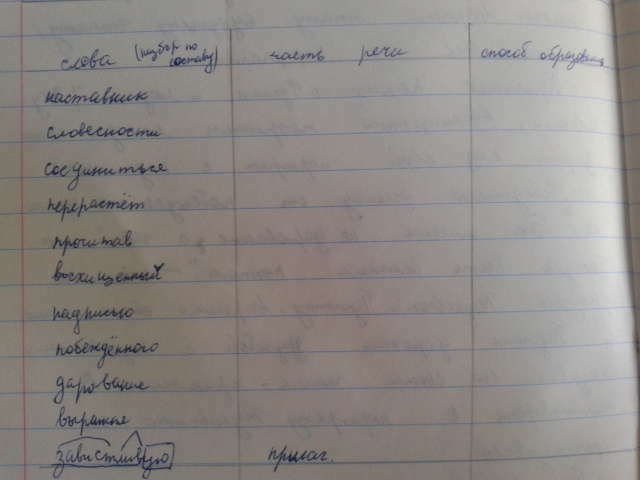 слова (разбор по составу) часть речи способ образован.
наставник
словесности
соединиться
перерастёт
прочитав
восхищенный
надписью
побеждённого
дарование
выражая
завистливую прилаг.